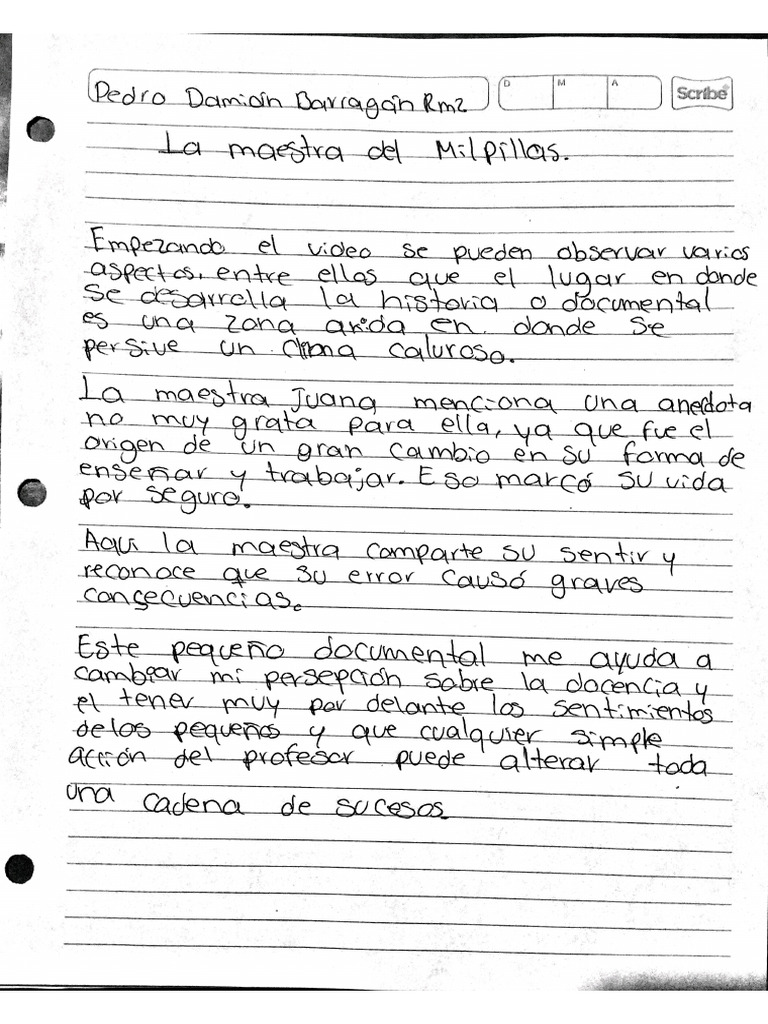 Pedro Damián Barragán Rmz
D M A
Scribe
La maestra del Milpillas.
Empezando el video se pueden observar varios
aspectos, entre ellos que el lugar en donde
se desarrolla la historia o documental
es una zona arida en donde se
persive un clima caluroso.
La maestra Juana menciona una anecdota
no muy grata para ella, ya que fue el
origen de un gran cambio en su forma de
enseñar y trabajar. Eso marcó su vida
por seguro.
Aqui la maestra comparte su sentir y
reconoce que su error causó graves
consecuencias.
Este pequeño documental me ayuda a
cambiar mi persepción sobre la docencia y
el tener muy por delante los sentimientos
de los pequeños y que cualquier simple
acción del profesor puede alterar toda
una cadena de sucesos